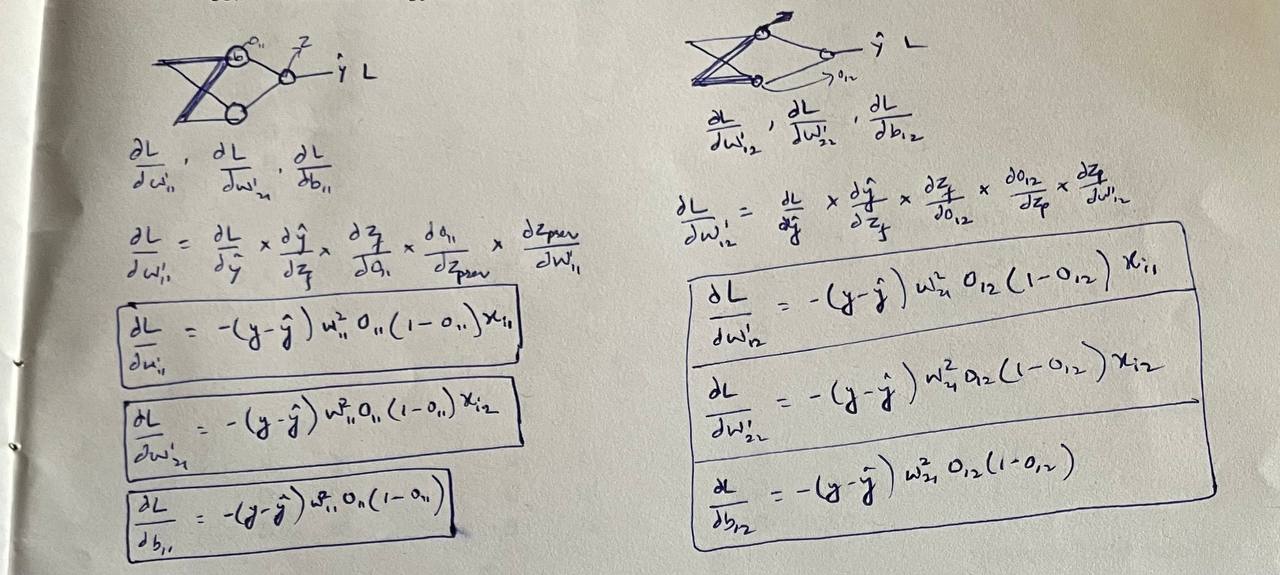 O₁₁ Z
b
ŷ L
∂L/∂w¹₁₁, ∂L/∂w¹₂₁, ∂L/∂b₁₁
∂L/∂w¹₁₁ = ∂L/∂ŷ × ∂ŷ/∂z_f × ∂z_f/∂O₁₁ × ∂O₁₁/∂z_prev × ∂z_prev/∂w¹₁₁
∂L/∂w¹₁₁ = -(y-ŷ) w²₁₁ O₁₁ (1-O₁₁) xᵢ₁
∂L/∂w¹₂₁ = -(y-ŷ) w²₁₁ O₁₁ (1-O₁₁) xᵢ₂
∂L/∂b₁₁ = -(y-ŷ) w²₁₁ O₁₁ (1-O₁₁)
ŷ L
O₁₂
∂L/∂w¹₁₂, ∂L/∂w¹₂₂, ∂L/∂b₁₂
∂L/∂w¹₁₂ = ∂L/∂ŷ × ∂ŷ/∂z_f × ∂z_f/∂O₁₂ × ∂O₁₂/∂z_p × ∂z_p/∂w¹₁₂
∂L/∂w¹₁₂ = -(y-ŷ) w²₂₁ O₁₂ (1-O₁₂) xᵢ₁
∂L/∂w¹₂₂ = -(y-ŷ) w²₂₁ O₁₂ (1-O₁₂) xᵢ₂
∂L/∂b₁₂ = -(y-ŷ) w²₂₁ O₁₂ (1-O₁₂)